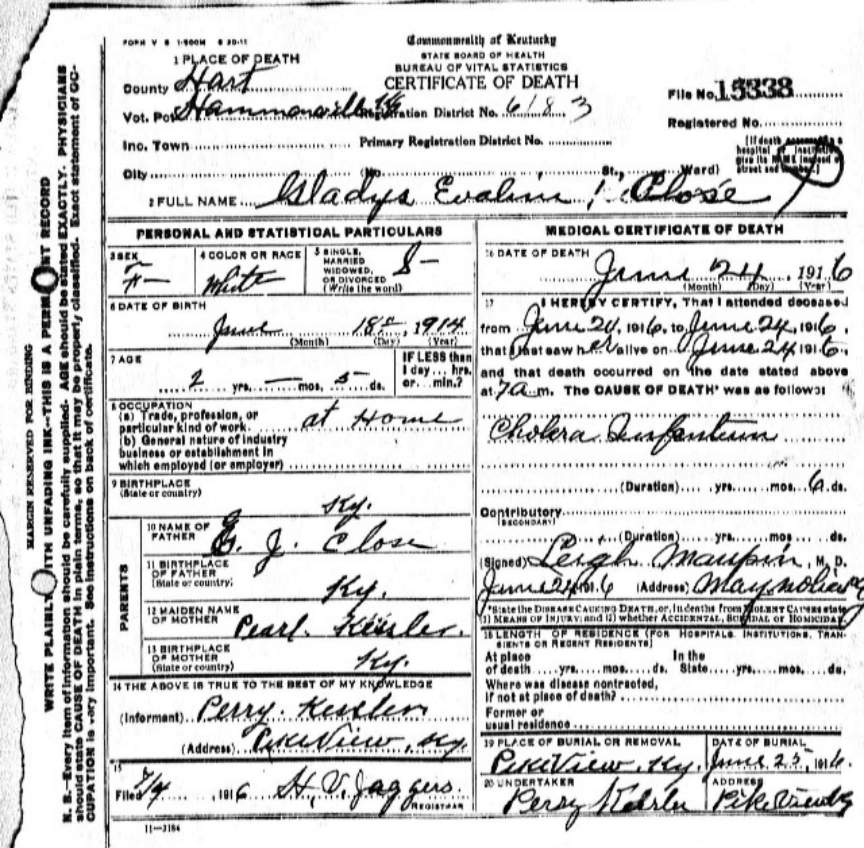 FORM V S 1-500M 8 20-11
Commonwealth of Kentucky
STATE BOARD OF HEALTH
BUREAU OF VITAL STATISTICS
CERTIFICATE OF DEATH
1 PLACE OF DEATH
County Hart
Vot. Pct Hammonville Ky Registration District No. 6183
File No. 15338
Registered No.
Inc. Town Primary Registration District No.
City (No. St., Ward)
[If death occurred in a hospital or institution give its NAME instead of street and number.]
2 FULL NAME Gladys Evalin Close
PERSONAL AND STATISTICAL PARTICULARS
3 SEX
F
4 COLOR OR RACE
White
5 SINGLE, MARRIED WIDOWED, OR DIVORCED (Write the word)
S
6 DATE OF BIRTH
June 18, 1914
(Month) (Day) (Year)
7 AGE
2 yrs. — mos. 5 ds.
IF LESS than 1 day ... hrs. or ... min.?
8 OCCUPATION
(a) Trade, profession, or
particular kind of work at Home
(b) General nature of industry
business or establishment in
which employed (or employer)
9 BIRTHPLACE
(State or country)
Ky.
PARENTS
10 NAME OF FATHER
G. J. Close
11 BIRTHPLACE OF FATHER
(State or country)
Ky.
12 MAIDEN NAME OF MOTHER
Pearl Kessler.
13 BIRTHPLACE OF MOTHER
(State or country)
Ky.
14 THE ABOVE IS TRUE TO THE BEST OF MY KNOWLEDGE
(Informant) Perry Kessler
(Address) PikeView, Ky
15
Filed 7/4, 1916 H. V. Jaggers
REGISTRAR
11—3184
MEDICAL CERTIFICATE OF DEATH
16 DATE OF DEATH
June 24, 1916
(Month) (Day) (Year)
17 I HEREBY CERTIFY, That I attended deceased
from June 20, 1916, to June 24, 1916,
that I last saw her alive on June 24 1916,
and that death occurred on the date stated above
at 7 a m. The CAUSE OF DEATH* was as follows:
Cholera Infantum
(Duration) yrs. mos. 6 ds.
Contributory
(SECONDARY)
(Duration) yrs. mos. ds.
(Signed) Leigh Maupin, M. D.
June 24 1916 (Address) Magnolia Ky
*State the DISEASE CAUSING DEATH, or, in deaths from VIOLENT CAUSES state
(1) MEANS OF INJURY; and (2) whether ACCIDENTAL, SUICIDAL OR HOMICIDAL
18 LENGTH OF RESIDENCE (FOR HOSPITALS, INSTITUTIONS, TRANSIENTS OR RECENT RESIDENTS)
At place In the
of death yrs. mos. ds. State yrs. mos. ds.
Where was disease contracted,
if not at place of death?
Former or
usual residence
19 PLACE OF BURIAL OR REMOVAL
PikeView, Ky.
DATE OF BURIAL
June 25, 1916
20 UNDERTAKER
Perry Kessler
ADDRESS
PikeView Ky
MARGIN RESERVED FOR BINDING
WRITE PLAINLY WITH UNFADING INK—THIS IS A PERMANENT RECORD
N. B.—Every item of information should be carefully supplied. AGE should be stated EXACTLY. PHYSICIANS
should state CAUSE OF DEATH in plain terms, so that it may be properly classified. Exact statement of OC-
CUPATION is very important. See instructions on back of certificate.